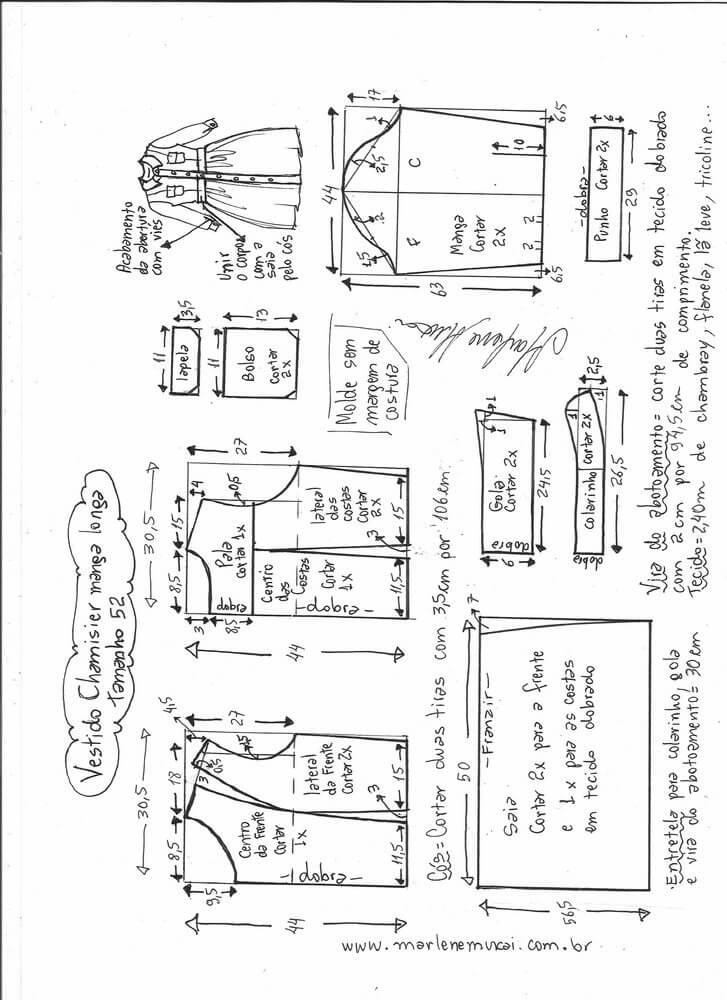 Vestido Chamisier manga longa
tamanho 52
30,5
8,5
18
4,5
9,5
3
0,5
1,5
27
44
Centro
da Frente
Cortar
1x
-dobra-
lateral
da Frente
Cortar 2x
11,5
3
15
30,5
8,5
15
4
3
8,5
0,5
27
44
Pala
Cortar 1x
dobra
Centro
das
Costas
Cortar
1x
-dobra-
lateral
das
costas
Cortar
2x
11,5
3
15
11
3,5
lapela
11
13
Bolso
Cortar
2x
Acabamento
da abertura
com viés
Unir
o corpo
com a
saia
pelo cós
Molde sem
margem de
costura
44
17
63
1,5
2
2,5
1
F
C
Manga
Cortar
2x
10
2
2
6,5
6,5
-dobra-
Punho Cortar 2x
6
29
Cós = Cortar duas tiras com 3,5cm por 106cm.
50
7
56,5
-Franzir-
Saia
Cortar 2x para a frente
e 1x para as costas
em tecido dobrado
Gola
Cortar 2x
dobra
9
24,5
1
1
colarinho
cortar 2x
dobra
1
1
2,5
26,5
Vira do abotoamento = corte duas tiras em tecido dobrado
com 2cm por 94,5cm de comprimento.
Tecido = 2,40m de chambray, flanela, lã leve, tricoline...
.Entretela para colarinho, gola
e vira do abotoamento = 30cm
www.marlenemukai.com.br